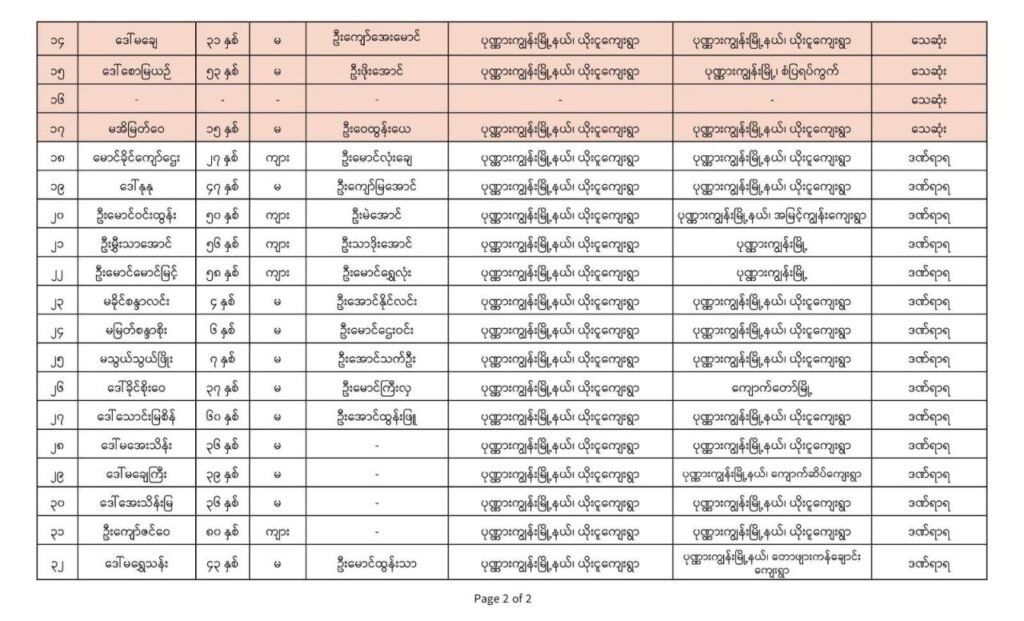 ၁၄ ဒေါ်မချေ ၃၁ နှစ် မ ဦးကျော်အေးမောင် ပုဏ္ဏားကျွန်းမြို့နယ်၊ ယိုးငူကျေးရွာ ပုဏ္ဏားကျွန်းမြို့နယ်၊ ယိုးငူကျေးရွာ သေဆုံး
၁၅ ဒေါ်စောမြယဉ် ၅၃ နှစ် မ ဦးဖိုးအောင် ပုဏ္ဏားကျွန်းမြို့နယ်၊ ယိုးငူကျေးရွာ ပုဏ္ဏားကျွန်းမြို့၊ စံပြရပ်ကွက် သေဆုံး
၁၆ - - - - - - သေဆုံး
၁၇ မအိမြတ်ဝေ ၁၅ နှစ် မ ဦးဝေထွန်းယေ ပုဏ္ဏားကျွန်းမြို့နယ်၊ ယိုးငူကျေးရွာ ပုဏ္ဏားကျွန်းမြို့နယ်၊ ယိုးငူကျေးရွာ သေဆုံး
၁၈ မောင်ခိုင်ကျော်ဌေး ၂၇ နှစ် ကျား ဦးမောင်လုံးချေ ပုဏ္ဏားကျွန်းမြို့နယ်၊ ယိုးငူကျေးရွာ ပုဏ္ဏားကျွန်းမြို့နယ်၊ ယိုးငူကျေးရွာ ဒဏ်ရာရ
၁၉ ဒေါ်နုနု ၄၇ နှစ် မ ဦးကျော်မြအောင် ပုဏ္ဏားကျွန်းမြို့နယ်၊ ယိုးငူကျေးရွာ ပုဏ္ဏားကျွန်းမြို့နယ်၊ ယိုးငူကျေးရွာ ဒဏ်ရာရ
၂၀ ဦးမောင်ဝင်းထွန်း ၅၀ နှစ် ကျား ဦးမဲအောင် ပုဏ္ဏားကျွန်းမြို့နယ်၊ ယိုးငူကျေးရွာ ပုဏ္ဏားကျွန်းမြို့နယ်၊ အမြင့်ကျွန်းကျေးရွာ ဒဏ်ရာရ
၂၁ ဦးမှီးသာအောင် ၅၆ နှစ် ကျား ဦးသာဒိုးအောင် ပုဏ္ဏားကျွန်းမြို့နယ်၊ ယိုးငူကျေးရွာ ပုဏ္ဏားကျွန်းမြို့ ဒဏ်ရာရ
၂၂ ဦးမောင်မောင်မြင့် ၅၈ နှစ် ကျား ဦးမောင်ရွှေလုံး ပုဏ္ဏားကျွန်းမြို့နယ်၊ ယိုးငူကျေးရွာ ပုဏ္ဏားကျွန်းမြို့ ဒဏ်ရာရ
၂၃ မခိုင်စန္ဒာလင်း ၄ နှစ် မ ဦးအောင်နိုင်လင်း ပုဏ္ဏားကျွန်းမြို့နယ်၊ ယိုးငူကျေးရွာ ပုဏ္ဏားကျွန်းမြို့နယ်၊ ယိုးငူကျေးရွာ ဒဏ်ရာရ
၂၄ မမြတ်စန္ဒာစိုး ၆ နှစ် မ ဦးမောင်ဌေးဝင်း ပုဏ္ဏားကျွန်းမြို့နယ်၊ ယိုးငူကျေးရွာ ပုဏ္ဏားကျွန်းမြို့နယ်၊ ယိုးငူကျေးရွာ ဒဏ်ရာရ
၂၅ မသွယ်သွယ်ဖြိုး ၇ နှစ် မ ဦးအောင်သက်ဦး ပုဏ္ဏားကျွန်းမြို့နယ်၊ ယိုးငူကျေးရွာ ပုဏ္ဏားကျွန်းမြို့နယ်၊ ယိုးငူကျေးရွာ ဒဏ်ရာရ
၂၆ ဒေါ်ခိုင်စိုးဝေ ၃၇ နှစ် မ ဦးမောင်ကြီးလှ ပုဏ္ဏားကျွန်းမြို့နယ်၊ ယိုးငူကျေးရွာ ကျောက်တော်မြို့ ဒဏ်ရာရ
၂၇ ဒေါ်သောင်းမြစိန် ၆၀ နှစ် မ ဦးအောင်ထွန်းဖြူ ပုဏ္ဏားကျွန်းမြို့နယ်၊ ယိုးငူကျေးရွာ ပုဏ္ဏားကျွန်းမြို့နယ်၊ ယိုးငူကျေးရွာ ဒဏ်ရာရ
၂၈ ဒေါ်မအေးသိန်း ၃၆ နှစ် မ - ပုဏ္ဏားကျွန်းမြို့နယ်၊ ယိုးငူကျေးရွာ ပုဏ္ဏားကျွန်းမြို့နယ်၊ ယိုးငူကျေးရွာ ဒဏ်ရာရ
၂၉ ဒေါ်မချေကြီး ၃၉ နှစ် မ - ပုဏ္ဏားကျွန်းမြို့နယ်၊ ယိုးငူကျေးရွာ ပုဏ္ဏားကျွန်းမြို့နယ်၊ ကျောက်ဆိပ်ကျေးရွာ ဒဏ်ရာရ
၃၀ ဒေါ်အေးသိန်းမြ ၃၆ နှစ် မ - ပုဏ္ဏားကျွန်းမြို့နယ်၊ ယိုးငူကျေးရွာ ပုဏ္ဏားကျွန်းမြို့နယ်၊ ယိုးငူကျေးရွာ ဒဏ်ရာရ
၃၁ ဦးကျော်ဇင်ဝေ ၈၀ နှစ် ကျား - ပုဏ္ဏားကျွန်းမြို့နယ်၊ ယိုးငူကျေးရွာ ပုဏ္ဏားကျွန်းမြို့နယ်၊ ယိုးငူကျေးရွာ ဒဏ်ရာရ
၃၂ ဒေါ်မရွှေသန်း ၄၃ နှစ် မ ဦးမောင်ထွန်းသာ ပုဏ္ဏားကျွန်းမြို့နယ်၊ ယိုးငူကျေးရွာ ပုဏ္ဏားကျွန်းမြို့နယ်၊ တောဖျားကန်ချောင်း
ကျေးရွာ ဒဏ်ရာရ
Page 2 of 2